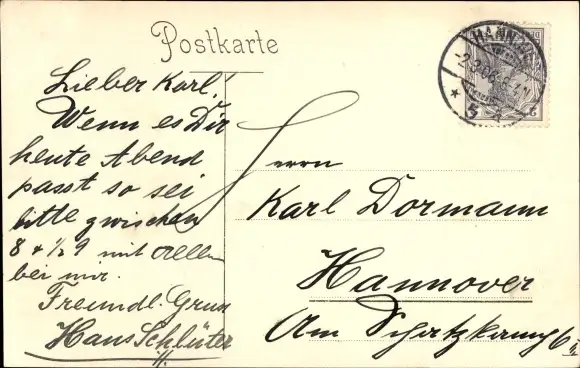 Postkarte
HANNOV
-2.3.06. 
* 5 k
Lieber Karl!
Wenn es Dir
heute Abend
passt so sei
bitte zwischen
8 & ½9 mit
bei mir.
Freundl. Gruss
Hans Schlüter
Herrn
Karl Dormann
Hannover
Am